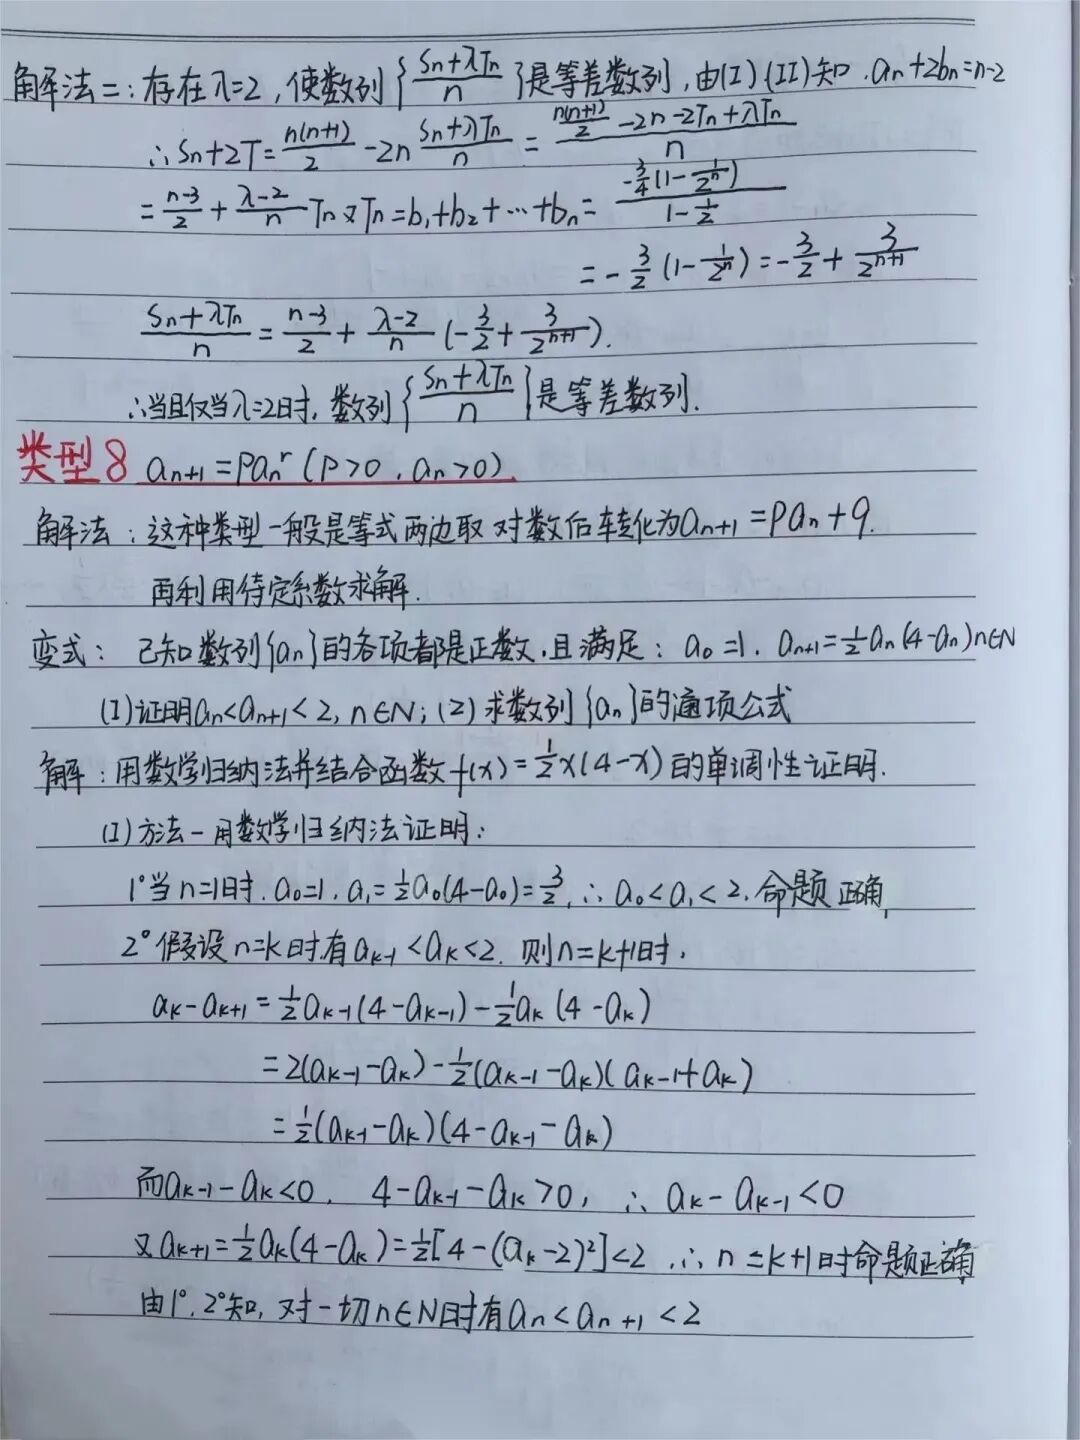 解法二:存在λ=2,使数列{(Sn+λTn)/n}是等差数列,由(I)(II)知.an+2bn=n-2
∴Sn+2T=n(n+1)/2 -2n (Sn+λTn)/n = (n(n+1)/2 -2n-2Tn+λTn)/n
=(n-3)/2+(λ-2)/n Tn又Tn=b₁+b₂+…+bn=(-3/4(1-1/2ⁿ))/(1-1/2)
=-3/2(1-1/2ⁿ)=-3/2+3/2ⁿ⁺¹
(Sn+λTn)/n=(n-3)/2+(λ-2)/n(-3/2+3/2ⁿ⁺¹).
∴当且仅当λ=2时,数列{(Sn+λTn)/n}是等差数列.
类型8 an+1=Panʳ(P>0,an>0)
解法:这种类型一般是等式两边取对数后转化为an+1=Pan+q.
再利用待定系数求解.
变式: 已知数列{an}的各项都是正数,且满足:a₀=1.an+1=½an(4-an)n∈N
(I)证明an<an+1<2,n∈N;(2)求数列{an}的通项公式
解:用数学归纳法并结合函数f(x)=½x(4-x)的单调性证明.
(I)方法一用数学归纳法证明:
1°当n=1时.a₀=1.a₁=½a₀(4-a₀)=3/2,∴a₀<a₁<2.命题正确,
2°假设n=k时有ak-1<ak<2.则n=k+1时,
ak-ak+1=½ak-1(4-ak-1)-½ak(4-ak)
=2(ak-1-ak)-½(ak-1-ak)(ak-1+ak)
=½(ak-1-ak)(4-ak-1-ak)
而ak-1-ak<0. 4-ak-1-ak>0,∴ak-ak-1<0
又ak+1=½ak(4-ak)=½[4-(ak-2)²]<2.∴n=k+1时命题正确
由1°.2°知,对一切n∈N时有an<an+1<2